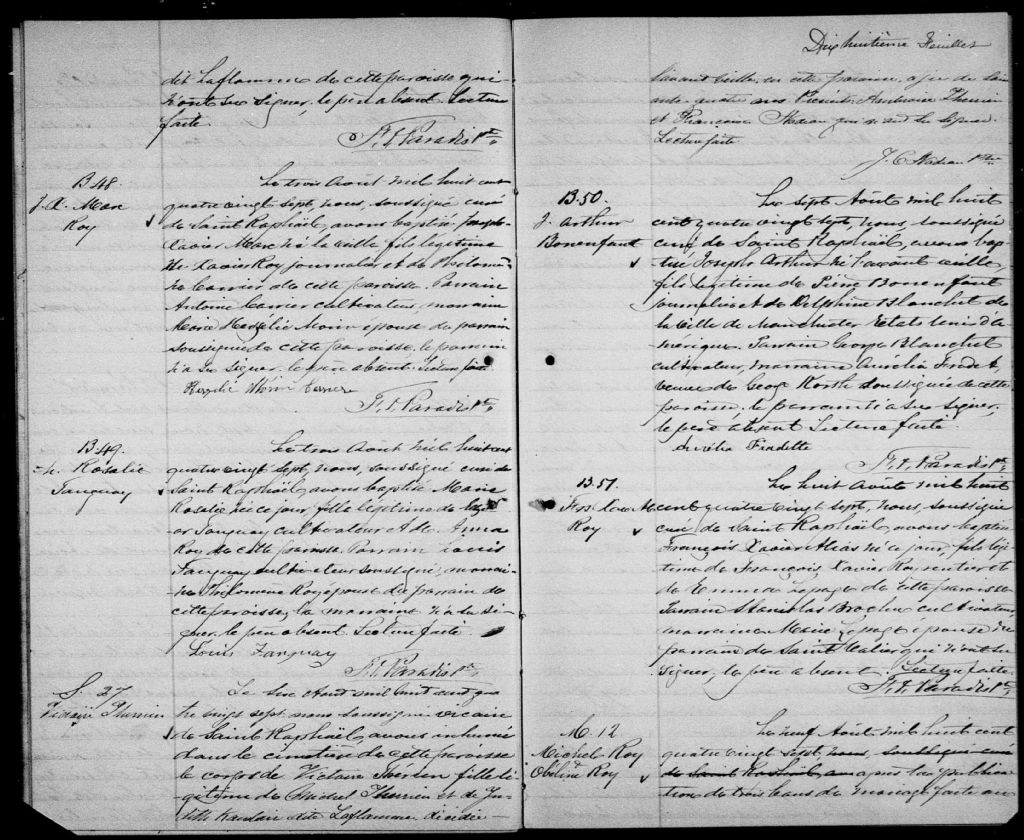 dit Laflamme de cette paroisse qui
n'ont su signer, le père absent. Lecture
faite.
F.X. Paradis Ptre
B 48.
J. X. Marc
Roy
Le trois Août mil huit cent
quatre vingt sept, nous, soussigné curé
de Saint Raphaël, avons baptisé Joseph
Xavier Marc né la veille, fils légitime
de Xavier Roy journalier et de Philomè-
ne Carrier de cette paroisse. Parrain
Antoine Carrier cultivateur, marraine
Marie Morin épouse du parrain
soussignée de cette paroisse, le parrain
n'a su signer, le père absent. Lecture faite
Morin Carrier
Paradis Ptre
B 49.
Rosalie
Tanguay
Le trois Août mil huit cent
quatre vingt sept, nous, soussigné curé de
Saint Raphaël, avons baptisé Marie
Rosalie née ce jour, fille légitime de
Tanguay cultivateur et de
Roy de cette paroisse. Parrain Louis
Tanguay cultivateur soussigné, marrai-
ne Philomène Roy épouse du parrain de
cette paroisse, la marraine n'a su si-
gner, le père absent. Lecture faite.
Louis Tanguay
Paradis Ptre
S. 27
Victaire Therrien
Le six Août mil huit cent qua-
tre vingt sept nous soussigné vicaire
de Saint Raphaël, avons inhumé
dans le cimetière de cette paroisse
le corps de Victaire fille lé-
gitime de Michel Therrien et de Ju-
dith dite Laflamme décédée
Dix huitième Feuillet
l'avant veille en cette paroisse, agée de
quatre ans Présents Therrien
et qui n'ont su signer.
Lecture faite
J. Ptre
B. 50.
J. Arthur
Bonenfant
Le sept Août mil huit
cent quatre vingt sept, nous, soussigné
curé de Saint Raphaël, avons bap-
tisé Joseph Arthur né l'avant veille,
fils légitime de Pierre Bonenfant
journalier et de Delphine Blanchet de
la Ville de Manchester Etats Unis d'A-
mérique. Parrain George Blanchet
cultivateur, marraine Aurélia
veuve de soussignée de cette
paroisse, le parrain n'a su signer,
le père absent Lecture faite
Aurélia Fradette
Paradis Ptre
B. 51.
Roy
Le huit Août mil huit
cent quatre vingt sept, nous, soussigné
curé de Saint Raphaël avons baptisé
François Xavier né ce jour, fils légi-
time de François Xavier Roy rentier et
de Emma Lepage de cette paroisse
Parrain Stanislas cultivateur
marraine Marie Lepage épouse du
parrain de Saint Valier qui n'ont su
signer, le père absent. Lecture faite.
Paradis Ptre
M. 12
Michel Roy
&
Obéline Roy
Le neuf Août mil huit cent
quatre vingt sept, nous, soussigné curé
de Saint Raphaël, après la publica-
tion de trois bans de mariage faite au